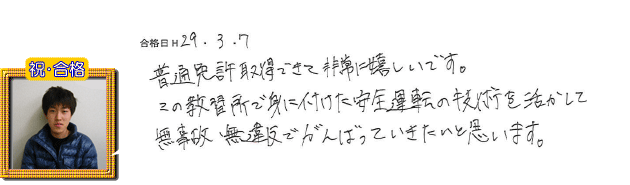 合格日 H 29.3.7
祝・合格
普通免許取得できて非常に嬉しいです。
この教習所で身に付けた安全運転の技術を活かして
無事故・無違反でがんばっていきたいと思います。